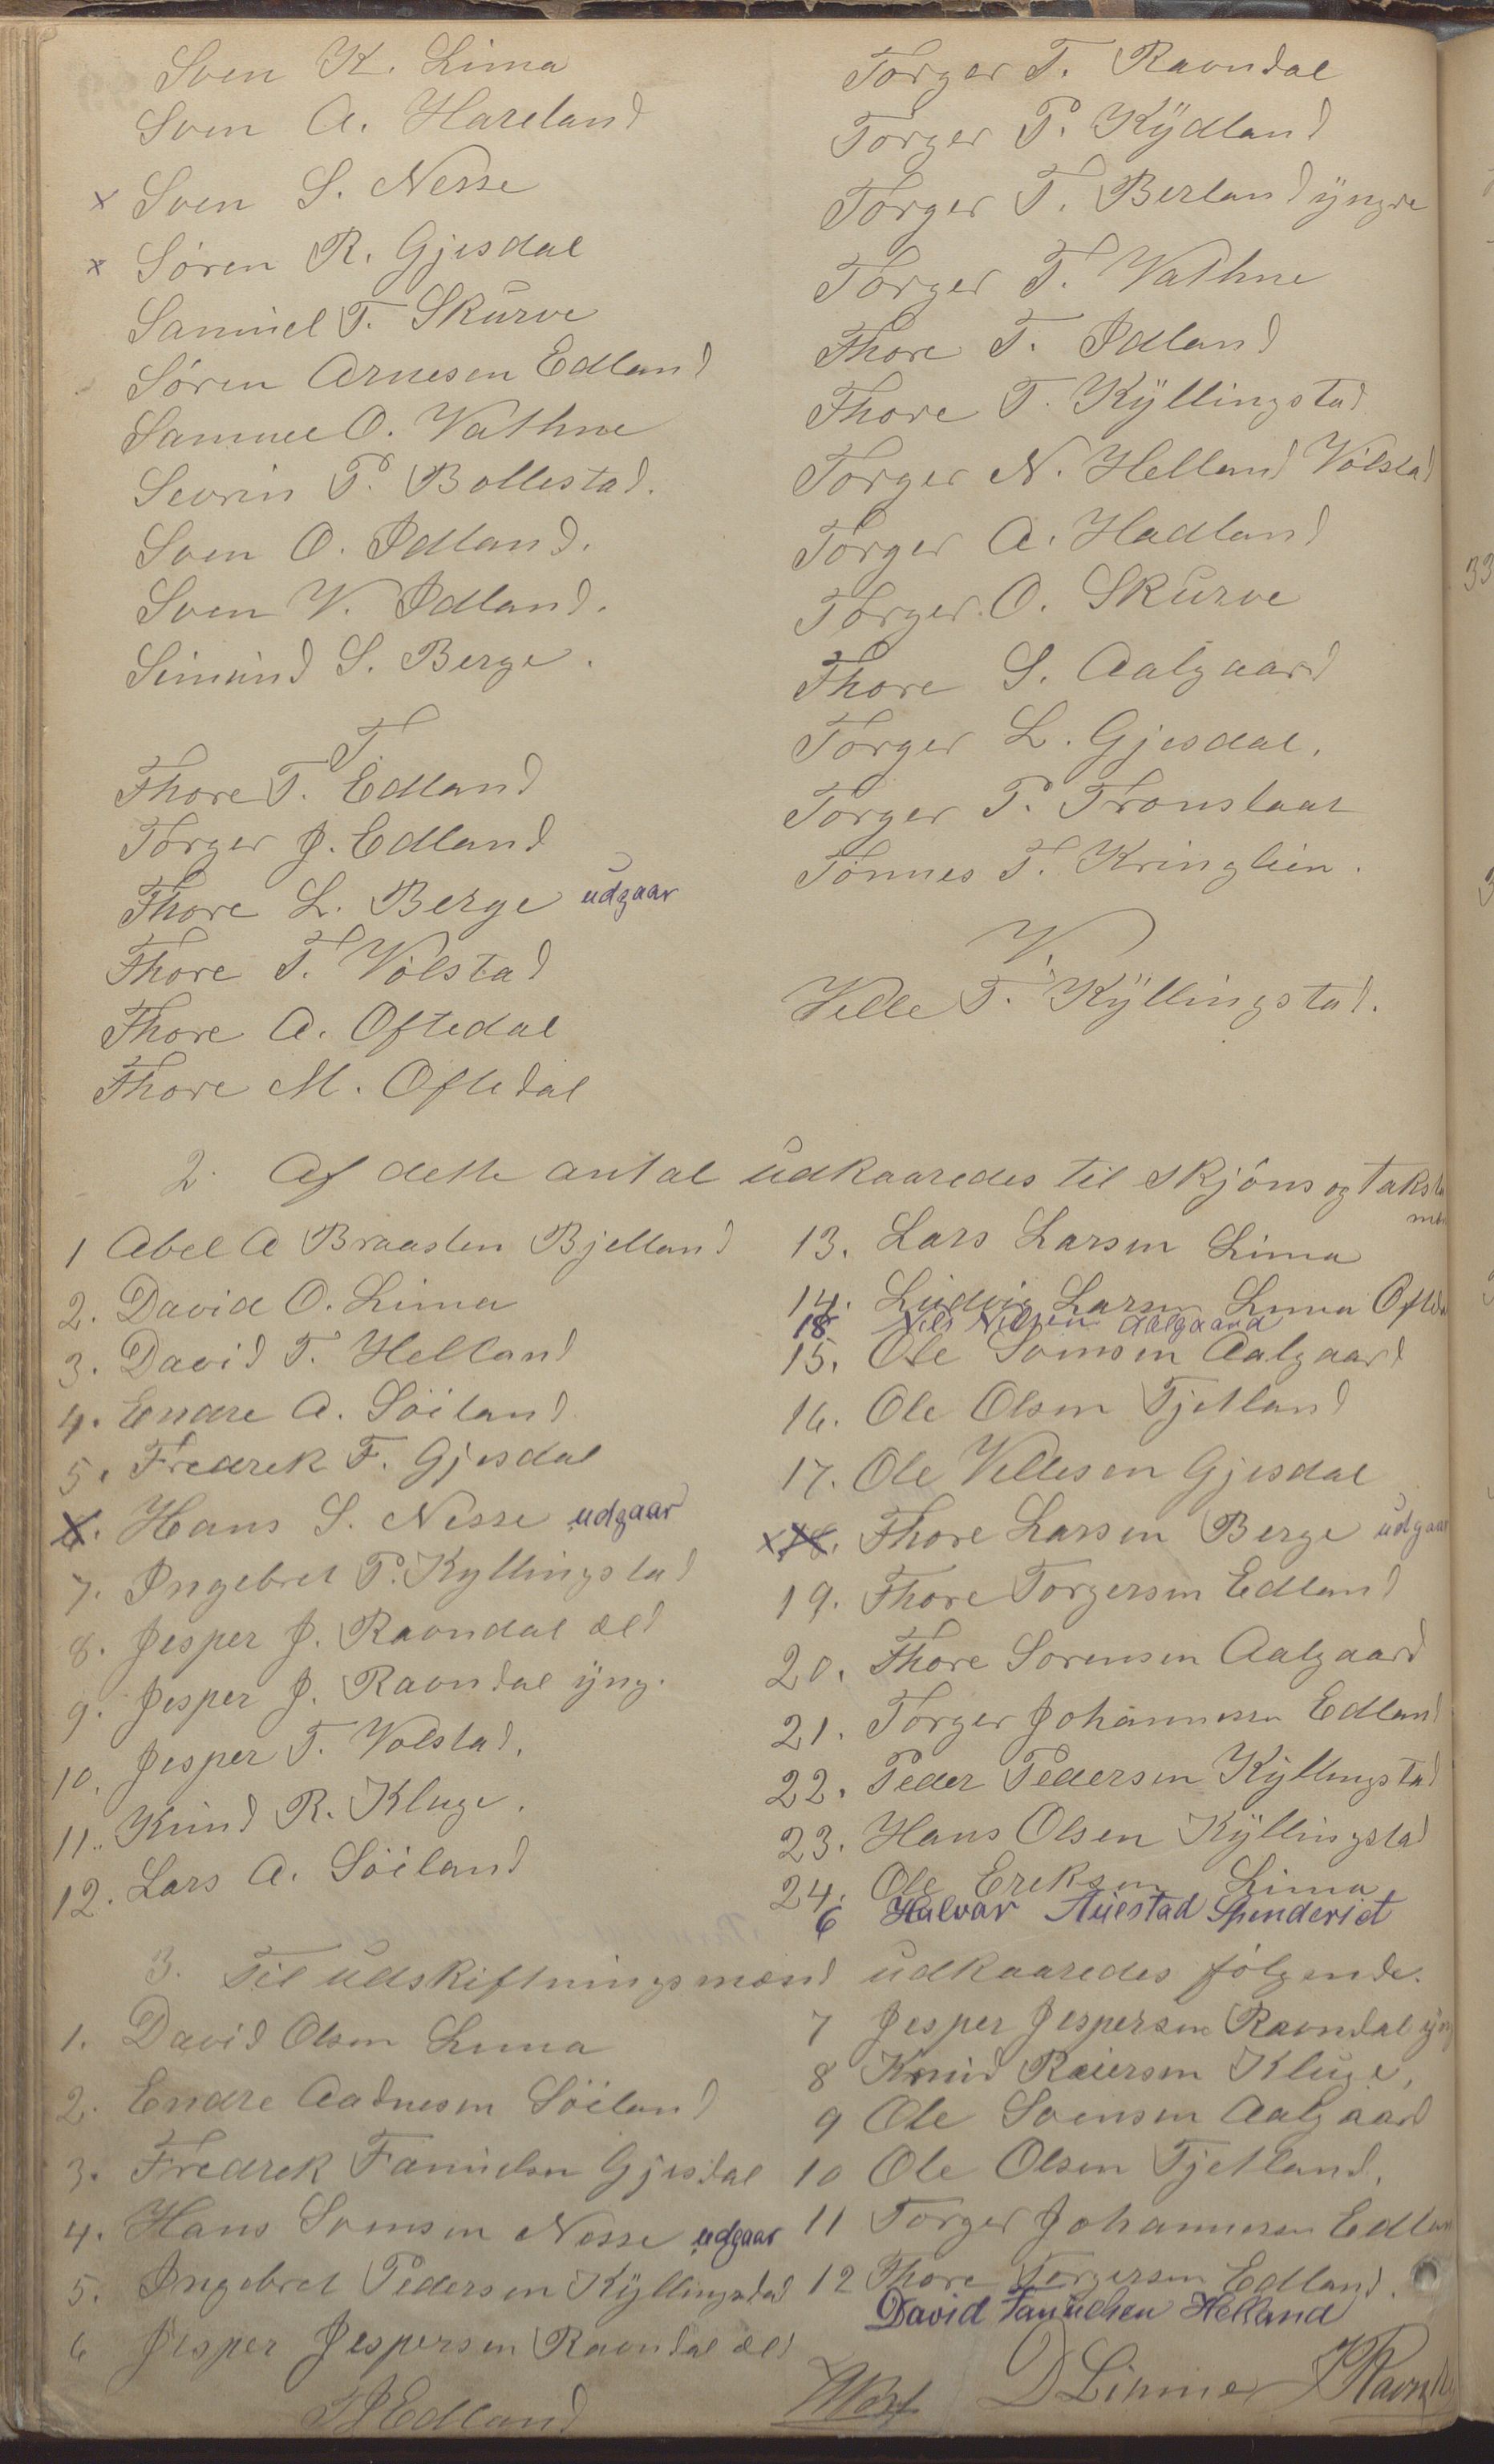 Sven K. Lima
Sven A. Hareland
x Sven S. Nesse
x Søren R. Gjesdal
Samuel T. Skurve
Søren Arnesen Edland
Samuel O. Vathne
Sevrin P. Bollestad.
Sven O. Idland.
Sven V. Idland.
Simund S. Berge.
T.
Thore T. Edland
Torger J. Edland
Thore L. Berge udgaar
Thore T. Volstad
Thore A. Oftedal
Thore M. Oftedal
Torger T. Ravndal
Torger P. Kÿdland
Torger T. Berland ÿngre
Torger T. Vathne
Thore T. Idland
Thore T. Kÿllingstad
Torger N. Helland Volstad
Torger A. Hadland
Torger O. Skurve
Thore S. Aalgaard
Torger L. Gjesdal.
Torger P. Fronslaat
Tönnes T. Kringlien.
V.
Velle T. Kÿllingstad.
2. Af dette antal udkaaredes til skjöns og takst
mæn
1 Abel A Braasten Bjelland
2. David O. Lima
3. David T. Helland
4. Endre A. Söiland
5. Fredrek F. Gjesdal
6. Hans S. Nesse udgaar
7. Ingebret P. Kyllingstad
8. Jesper J. Ravndal æld
9. Jesper J. Ravndal ÿng.
10. Jesper T. Volstad.
11. Knud R. Kluge.
12. Lars A. Söiland
13. Lars Larsen Lima
14. Ludvig Larsen Lima Ofteda
18 Nils Nilsen Aalgaard
15. Ole Svensen Aalgaard
16. Ole Olsen Tjetland
17. Ole Vellesen Gjesdal
x 18. Thore Larsen Berge udgaar
19. Thore Torgersen Edland
20. Thore Sorensen Aalgaard
21. Torger Johannesen Edland
22. Peder Pedersen Kÿllingstad
23. Hans Olsen Kÿllingstad
24. Ole Ereksen Lima
6 Halvar Auestad
3. Til udskiftningsmænd udkaaredes følgende.
1. David Olsen Lima
2. Endre Aadnesen Söiland
3. Fredrek Famuelsen Gjesdal
4. Hans Svensen Nesse udgaar
5. Ingebret Pedersen Kÿllingstad
6 Jesper Jespersen Ravndal æld
7 Jesper Jespersen Ravndal ÿng
8 Knud Reiersen Kluge.
9 Ole Svensen Aalgaard
10 Ole Olsen Tjetland.
11 Torger Johannesen Edlan
12 Thore Torgersen Edland.
David Famuelsen Helland
TJEdland
DLimme
JRavnd